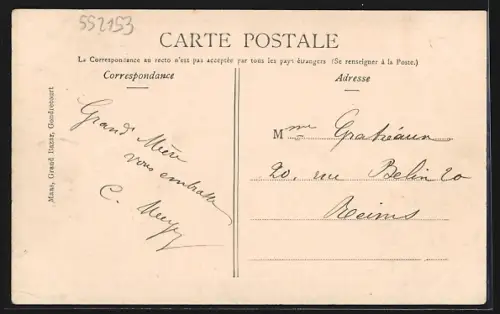 552153
CARTE POSTALE
La Correspondance au recto n'est pas acceptée par tous les pays étrangers (Se renseigner à la Poste.)
Correspondance
Adresse
Maas, Grand Bazar, Gondrecourt
Grand' Mère
vous embrasse
C.
Mme
20, rue Belin 20
Reims